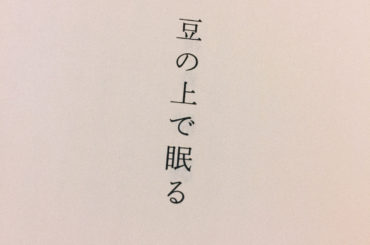 豆の上で眠る